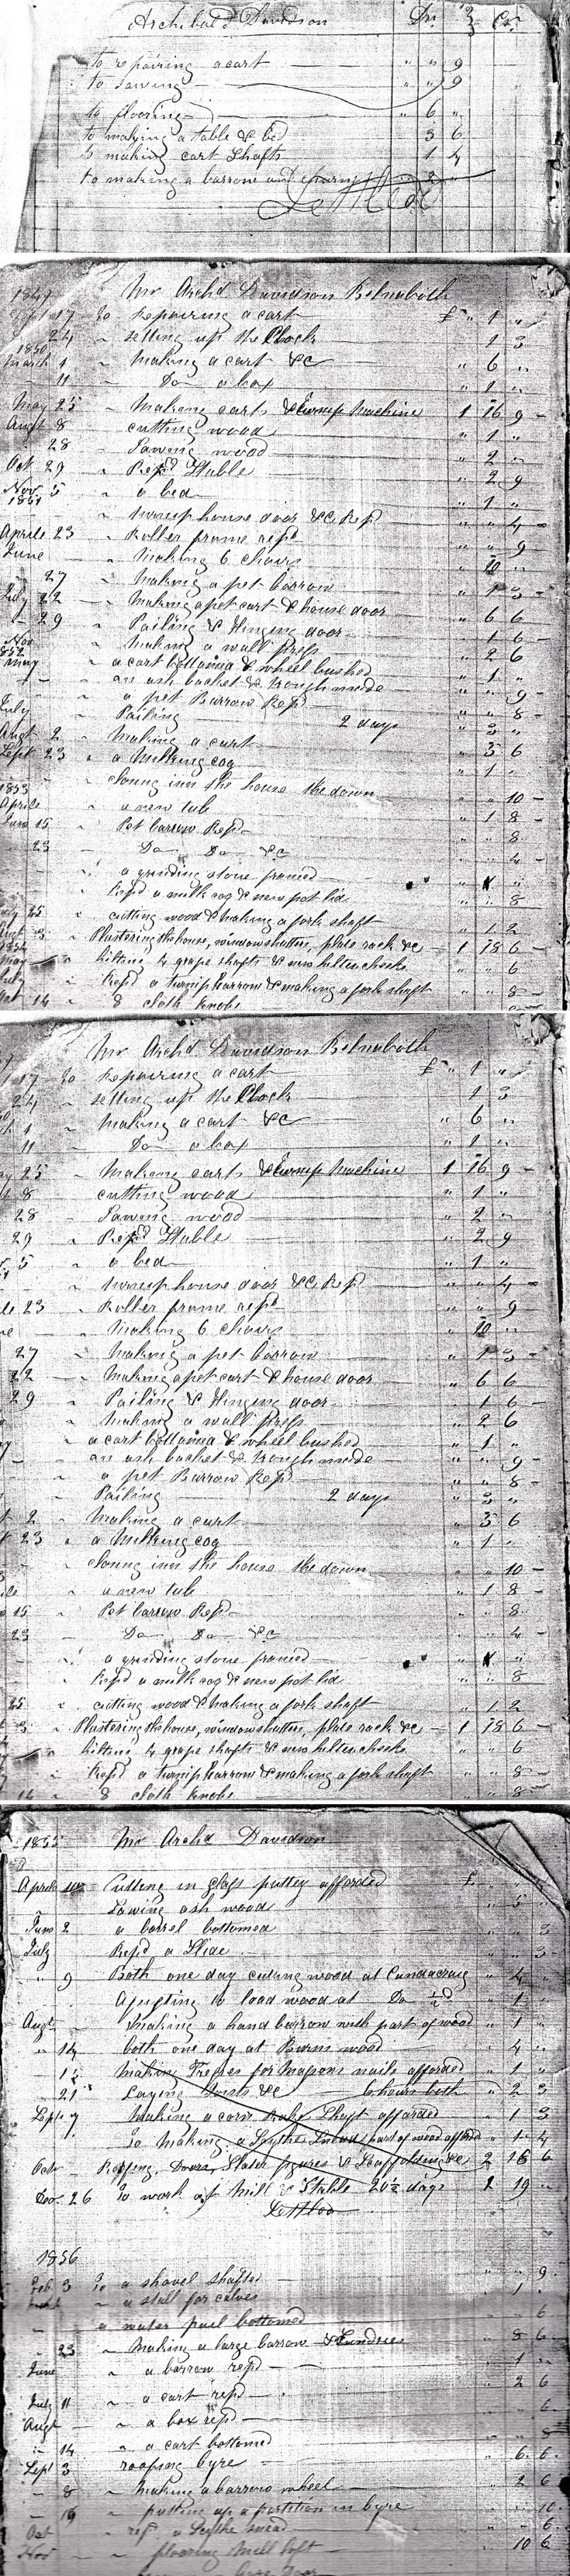 Archibald Davidson Dr. Cr.
to repairing a cart " " 9
to sawing " " 9
to flooring " 6 "
to making a table & bed 3 6
to making cart Shafts 1 4
to making a barrow and 2 "
Settled
1849 Mr Archd Davidson Belnaboth
17 To Repairing a cart £ " 1 "
24 " setting up the Clock 1 3
1850 March 1 " Making a cart &c " 6 "
" 11 " Do a box " 1 "
May 25 " Making carts & turnip Machine 1 16 9
Augt 8 cutting wood " 1 "
" 28 " Sawing wood " 2 "
Oct 29 " Repd Stable " 2 9
Nov 5 " a bed " 1 "
1851 " turnip house door &c Repd " " 4
Aprile 23 " Roller frame repd " " 9
June " Making 6 chairs " 10 "
" 27 " Making a pet barrow " 1 3
July 22 " Making a pet cart & house door " 6 6
" 29 " Pailing & Hinging door " 1 6
Nov " Making a wall press " 2 6
1852 May " a cart bottoming & wheel bushed " 1 "
" an ash backet & trough made " " 9
" a pet Barrow Repd " " 8
July " Pailing 2 days " 3 "
Augt 2 " Making a cart " 3 6
Sept 23 " a Milking cog " 1 "
" the house the down " " 10
1853 Aprile " a new tub " 1 8
June 15 " Pet barrow Repd " " 8
23 " Do Do &c " " 4
" a grinding stone framed "
" Repd a milk cog & new pot lid " " 8
July 25 " cutting wood & making a fork shaft " 1 2
Augt 3 " Plastering the house, window shutters, plate rack &c 1 18 6
1854 May " hilting 4 grape shafts & two hilts " " 6
July " Repd a turnip barrow & making a fork shaft " " 8
Oct 14 " 8 cloth knobs
Mr Archd Davidson Belnaboth
17 To Repairing a cart £ " 1 "
24 " setting up the Clock 1 3
1 " Making a cart &c " 6 "
11 " Do a box " 1 "
25 " Making carts & turnip Machine 1 16 9
8 " cutting wood " 1 "
28 " Sawing wood " 2 "
29 " Repd Stable " 2 9
5 " a bed " 1 "
" turnip house door &c Repd " " 4
23 " Roller frame repd " " 9
" Making 6 chairs " 10 "
27 " Making a pet barrow " 1 3
22 " Making a pet cart & house door " 6 6
29 " Pailing & Hinging door " 1 6
" Making a wall press " 2 6
" a cart bottoming & wheel bushed " 1 "
" an ash backet & trough made " " 9
" a pet Barrow Repd " " 8
" Pailing 2 days " 3 "
2 " Making a cart " 3 6
23 " a Milking cog " 1 "
" the house the down " " 10
" a new tub " 1 8
15 " Pet barrow Repd " " 8
23 " Do Do &c " " 4
" a grinding stone framed "
" Repd a milk cog & new pot lid " " 8
25 " cutting wood & making a fork shaft " 1 2
3 " Plastering the house, window shutters, plate rack &c 1 18 6
" hilting 4 grape shafts & two hilts " " 6
" Repd a turnip barrow & making a fork shaft " " 8
14 " 8 cloth knobs " " 8
1855 Mr Archd Davidson
Aprile 10 Putting in glass puttey afforded £
Sawing ash wood " 5 "
June 2 a barrel bottomed 3
July Repd a Slide 3
" 9 Both one day cutting wood at Candacraig " 4 "
Assisting to load wood at Do ½ D " 1 "
Augt Making a hand barrow with part of wood " 1 "
" 14 both one day at Burns wood " 4 "
" 15 Making Tresses for Masons nails afforded " 1 "
" 21 Laying Joists &c 6 hours both " 2 3
Sept 7 Making a corn Rake Shaft afforded " 1 3
To Making a Scythe Snead part of wood afford " 1 4
Octr Roofing, Doors, & Scaffolding &c 2 16 6
Dec. 26 To work at Mill & Stable 20½ days 2 19 "
Settled
1856
Feb. 3 To a shovel shafted 9
" a stall for calves 1 "
" a water pail bottomed 6
" 23 " Making a large barrow & Sundries 8 6
June " a barrow repd 1 "
July 11 " a cart repd 2 6
Augt " a box repd 6
" 14 " a cart bottomed 8
Sept 3 roofing byre 6 6
" 8 " Making a barrow wheel 2 6
" 16 " putting up a partition in byre 10
Oct " repd a Scythe snead 6
Nov " flooring Mill loft 10 6